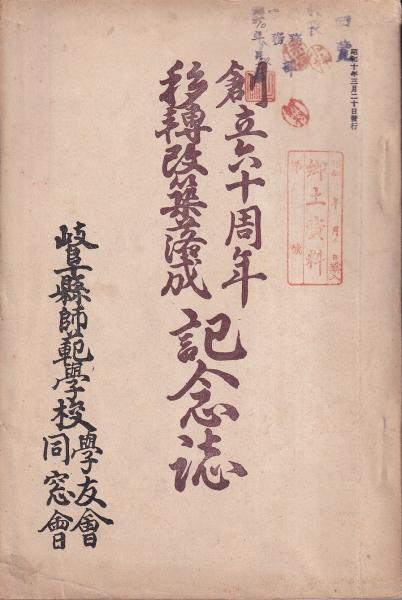 昭和十年三月二十日發行
回覽
郷土資料
昭和 年 月 日
第 號
創立六十周年
移轉改築落成
記念誌
岐阜縣師範學校
學友會
同窓會